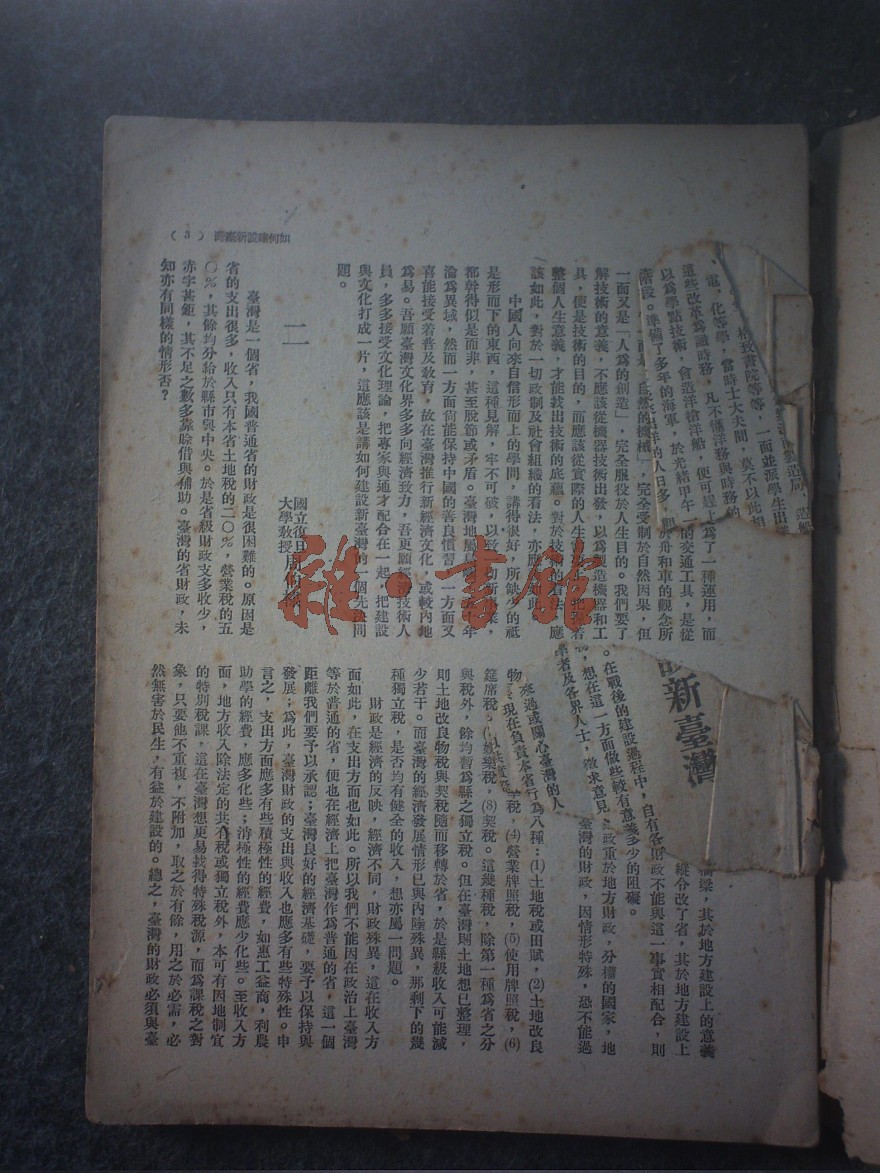 如何建設新臺灣
（3）
、格致書院等等，一面並派學生出
、電，化等學，當時士大夫間，莫不以此相
這些改革為識時務，凡不懂洋務與時務的
以為學點技術，會造洋槍洋船，便可趕上
為了一種運用，而
階段。準備了多年的海軍，於光緒甲午
的交通工具，是從
出洋的人日多
舟和車的觀念所
自然的機械，完全受制於自然因果，但
一面又是「人為的創造」，完全服役於人生目的。我們要了
解技術的意義，不應該從機器技術出發，以為製造機器和工
具，便是技術的目的，而應該從實際的人生
整個人生意義，才能找出技術的底蘊。對於技術的看法，應
該如此，對於一切政制及社會組織的看法，亦應
中國人向來自信形而上的學問，講得很好，所缺少的祗
是形而下的東西，這種見解，牢不可破，以致
都幹得似是而非，甚至脫節或矛盾。臺灣地屬
十年
淪為異域，然而一方面尙能保持中國的善良慣習，一方面又
喜能接受着普及敎育，故在臺灣推行新經濟文化，或較內地
為易。吾願臺灣文化界多多向經濟致力，吾更願經濟技術人
員，多多接受文化理論，把專家與通才配合在一起，把建設
與文化打成一片，這應該是講如何建設新臺灣的一個先決問
題。
二
國立復旦
大學敎授
臺灣是一個省，我國普通省的財政是很困難的。原因是
省的支出很多，收入只有本省土地稅的二〇％，營業稅的五
〇％，其餘均分給於縣市與中央。於是省級財政支多收少，
赤字甚鉅，其不足之數多靠賒借與補助。臺灣的省財政，未
知亦有同樣的情形否？
新臺灣
橋梁，其於地方建設上的意義
縱令改了省，其於地方建設上
。在戰後的建設過程中，自有各
財政不能與這一事實相配合，則
多少的阻礙。
，想在這一方面做些較有意義
政重於地方財政，分權的國家，地
學者及各界人士，徵求意見
臺灣的財政，因情形特殊，恐不能過
來過或關心臺灣的人
現在負責本省行
為八種：⑴土地稅或田賦，⑵土地改良
物
稅，⑷營業牌照稅，⑸使用牌照稅，⑹
筵席稅，
娛樂稅，⑻契稅。這幾種稅，除第一種為省之分
與稅外，餘均暫為縣之獨立稅。但在臺灣則土地想已整理，
則土地改良物稅與契稅隨而移轉於省，於是縣級收入可能減
少若干。而臺灣的經濟發展情形已與內陸殊異，那剩下的幾
種獨立稅，是否均有健全的收入，想亦屬一問題。
財政是經濟的反映，經濟不同，財政殊異，這在收入方
面如此，在支出方面也如此。所以我們不能因在政治上臺灣
等於普通的省，便也在經濟上把臺灣作為普通的省，這一個
距離我們要予以承認；臺灣良好的經濟基礎，要予以保持與
發展；為此，臺灣財政的支出與收入也應多有些特殊性。申
言之，支出方面應多有些積極性的經費，如惠工益商，利農
助學的經費，應多化些；消極性的經費應少化些。至收入方
面，地方收入除法定的共有稅或獨立稅外，本可有因地制宜
的特別稅課，這在臺灣想更易找得特殊稅源，而為課稅之對
象，只要他不重複，不附加，取之於有餘，用之於必需，必
然無害於民生，有益於建設的。總之，臺灣的財政必須與臺
雜·書館